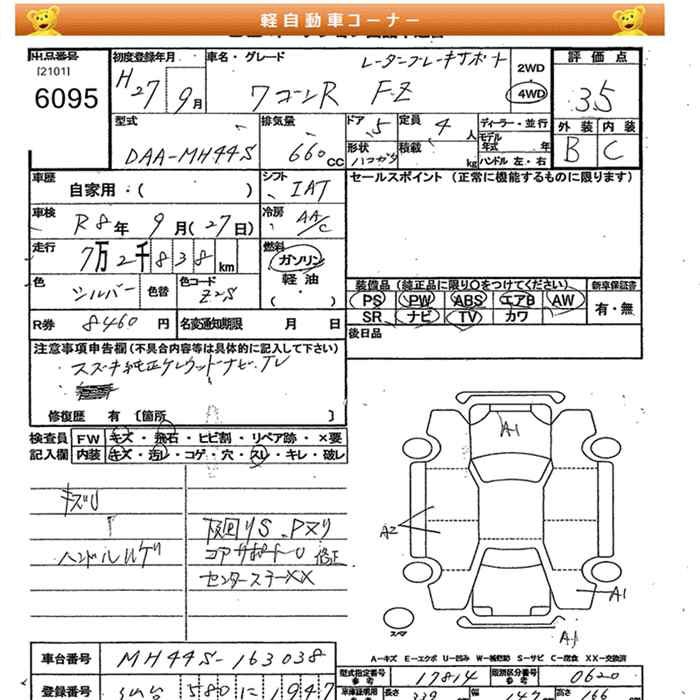 軽自動車コーナー
出品番号
[2101]
6095
初度登録年月
H27 9月
車名・グレード
レーダーブレーキサポート
ワゴンR FZ
2WD
4WD
評価点
3.5
外装 内装
B C
型式
DAA-MH44S
排気量
660 cc
ドア 5
形状
定員 4 人
積載 kg
ディーラー・並行
モデル年式 年
ハンドル 左・右
車歴
自家用・( )
シフト
IAT
車検
R8年 9月(27日)
冷房
AA/C
走行
7万2千838km
燃料
ガソリン
軽油
( ・ )
色
シルバー
色替
色コード
Z2S
R券 8460円
名変通知期限 月 日
セールスポイント (正常に機能するものに限ります)
装備品 (純正品に限り○をつけてください)
新車保証書
PS PW ABS エアB AW
SR ナビ TV カワ
有・無
後日品
注意事項申告欄(不具合内容等は具体的に記入して下さい)
スズキ純正 ナビ、TV
修復歴 有 〔箇所 〕
検査員
記入欄
FW キズ・飛石・ヒビ割・リペア跡・×要
内装 キズ・汚レ・コゲ・穴・スレ・キレ・破レ
キズU
ハンドルUゲ
下回りS、Pヌリ
コアサポートU 修正
センターステーXX
A1
A2
A1
A1
スペア
A-キズ E-エクボ U-凹み W-補修跡 S-サビ C-腐食 XX-交換済
車台番号
MH44S-163038
型式指定番号
参考
17814
類別区分番号
参考
0620
登録番号
580 に 1947
車庫証明用
参考
長さ 339
幅 147
高さ